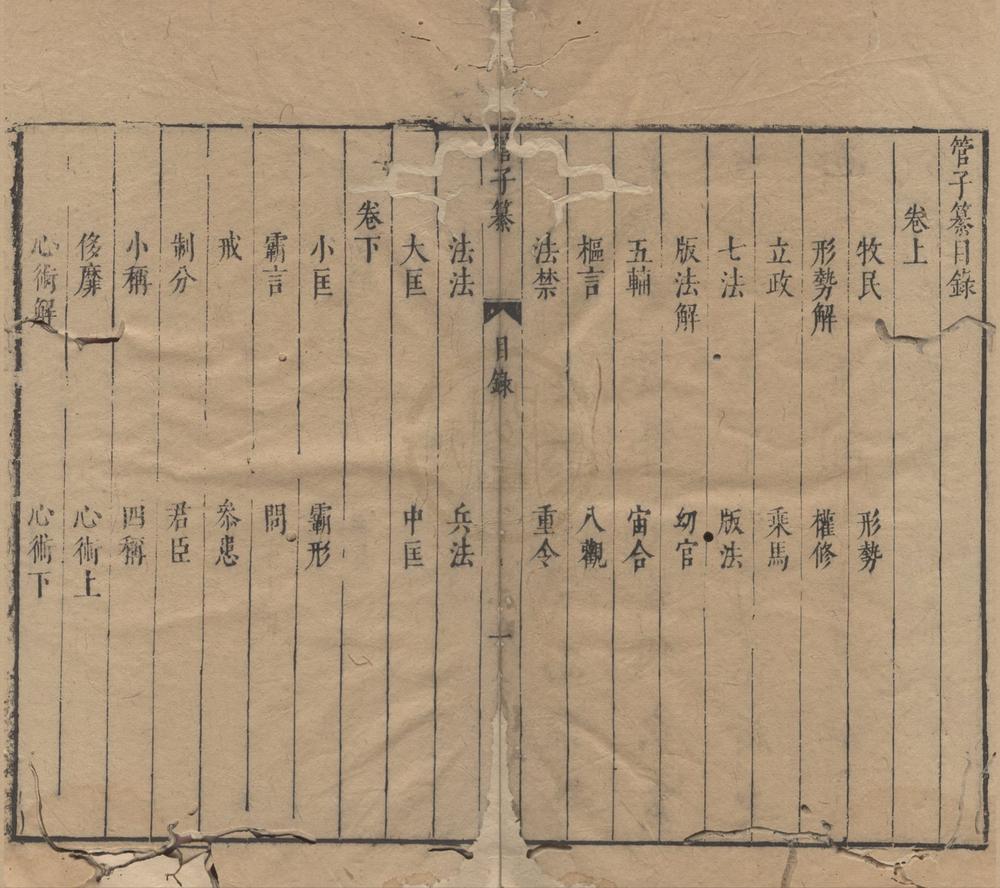 管子纂目錄
卷上
牧民 形勢
形勢解 權修
立政 乘馬
七法 版法
版法解 幼官
五輔 宙合
樞言 八觀
法禁 重令
管子纂 目錄 一
法法 兵法
大匡 中匡
卷下
小匡 霸形
霸言 問
戒 參患
制分 君臣
小稱 四稱
侈靡 心術上
心術解 心術下